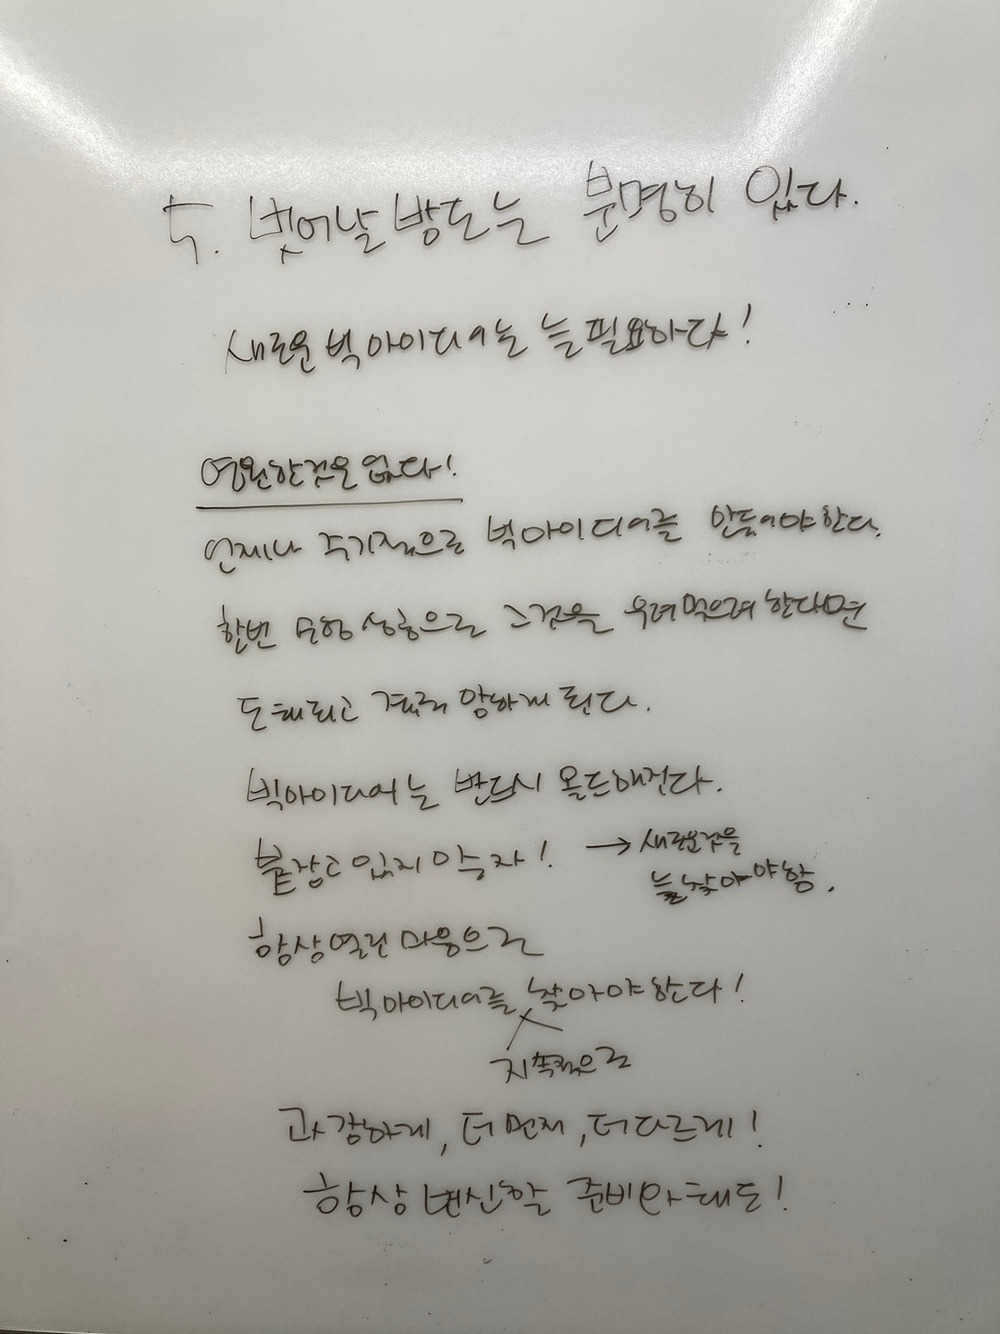 5. 벗어날 방도는 분명히 있다.
새로운 빅아이디어는 늘 필요하다!
영원한것은 없다!
언제나 주기적으로 빅아이디어를 만들어야한다.
한번 수행 상황으로 그것을 우려먹으려 한다면
도태되고 결국 망하게 된다.
빅아이디어는 반드시 올드해진다.
붙잡고 있지 마ᅟᅠ자!
→ 새로운것을
늘찾아야함.
항상 열린 마음으로
빅아이디어를 찾아야한다!
지속적으로
과감하게, 더 먼저, 더 다르게!
항상 변신할 준비와 태도!